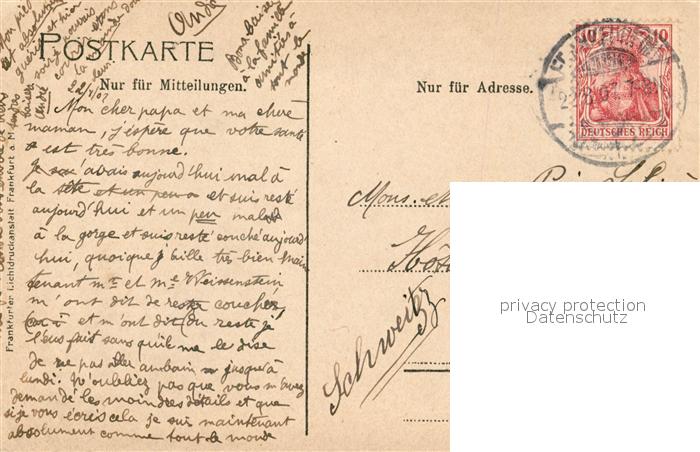 POSTKARTE
Nur für Mitteilungen.
Nur für Adresse.
22/8/07
Mon cher papa et ma chère
maman, j'espère que votre santé
est très bonne.
Je avais aujourd'hui mal à
la tête et un peu et suis resté
aujourd'hui et un peu malade
à la gorge et suis resté couché aujourd
hui, quoique j'aille très bien main
tenant mr et me Weissenstein
m'ont dit de rester coucher,
et m'ont dit (du reste je
l'eus fait sans qu'il me le dise
Je ne pas aller au bain jusqu'à
lundi. N'oubliez pas que vous m'avez
demandé les moindres détails et que
si je vous écris cela je suis maintenant
absolument comme tout le monde
Bons baisers
à la famille
amitiés à
tout le
monde
André
Mons. et
Schweitz
10
10
DEUTSCHES REICH
Frankfurter Lichtdruckanstalt Frankfurt a. M.
privacy protection
Datenschutz